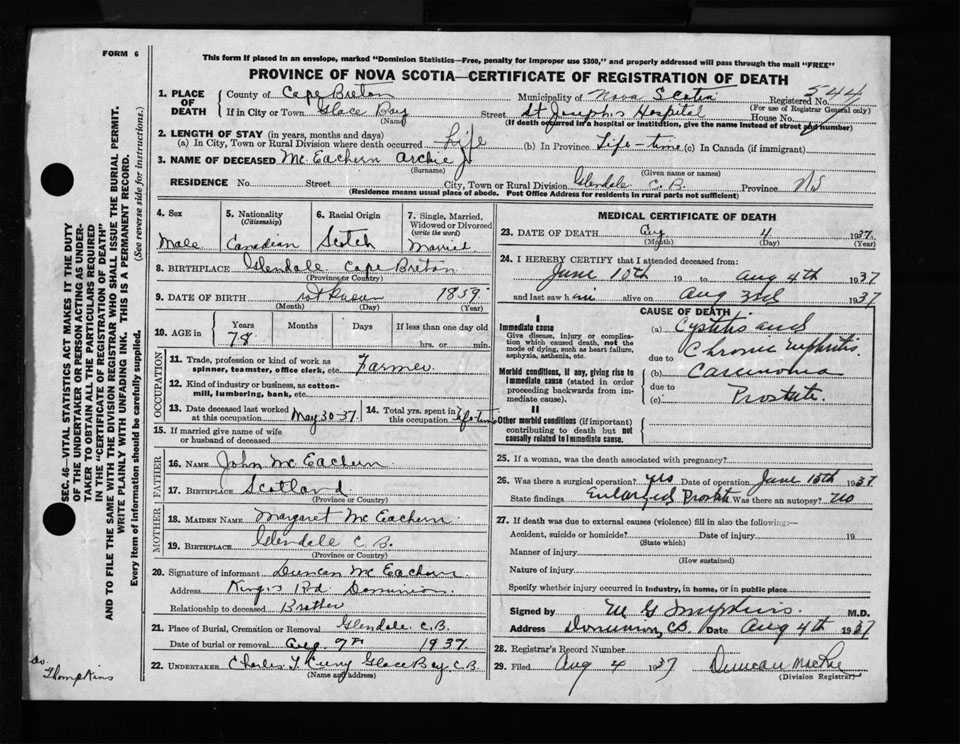 FORM 6
This form if placed in an envelope, marked "Dominion Statistics—Free, penalty for improper use $300," and properly addressed will pass through the mail "FREE"
PROVINCE OF NOVA SCOTIA—CERTIFICATE OF REGISTRATION OF DEATH
1. PLACE OF DEATH
County of Cape Breton Municipality of Nova Scotia Registered No. 544
(For use of Registrar General only)
If in City or Town Glace Bay Street St Joseph's Hospital House No.
(Name) (If death occurred in a hospital or institution, give the name instead of street and number)
2. LENGTH OF STAY (in years, months and days)
(a) In City, Town or Rural Division where death occurred Life (b) In Province Life-time (c) In Canada (if immigrant)
3. NAME OF DECEASED McEachern Archie J
(Surname) (Given name or names)
RESIDENCE No. Street City, Town or Rural Division Glendale C.B. Province NS
(Residence means usual place of abode. Post Office Address for residents in rural parts not sufficient)
4. Sex
Male
5. Nationality
(Citizenship)
Canadian
6. Racial Origin
Scotch
7. Single, Married, Widowed or Divorced
(write the word)
Married
8. BIRTHPLACE Glendale Cape Breton
(Province or Country)
9. DATE OF BIRTH not known 1859
(Month) (Day) (Year)
10. AGE in
Years Months Days If less than one day old
78 hrs. or min.
OCCUPATION
11. Trade, profession or kind of work as spinner, teamster, office clerk, etc. Farmer
12. Kind of industry or business, as cotton-mill, lumbering, bank, etc.
13. Date deceased last worked at this occupation May 30-37
14. Total yrs. spent in this occupation Life time
15. If married give name of wife or husband of deceased
FATHER
16. NAME John McEachern
17. BIRTHPLACE Scotland
(Province or Country)
MOTHER
18. MAIDEN NAME Margaret McEachern
19. BIRTHPLACE Glendale C.B.
(Province or Country)
20. Signature of informant Duncan McEachern
Address King's Rd Dominion
Relationship to deceased Brother
21. Place of Burial, Cremation or Removal Glendale C.B.
Date of burial or removal Aug 7th 1937
22. UNDERTAKER Charles T Curry Glace Bay, C.B.
(Name and address)
MEDICAL CERTIFICATE OF DEATH
23. DATE OF DEATH Aug 4 1937
(Month) (Day) (Year)
24. I HEREBY CERTIFY that I attended deceased from:
June 10th 19 to Aug 4th 1937
and last saw him alive on Aug 3rd 1937
CAUSE OF DEATH
I
Immediate cause
Give disease, injury or complication which caused death, not the mode of dying, such as heart failure, asphyxia, asthenia, etc.
Morbid conditions, if any, giving rise to immediate cause (stated in order proceeding backwards from immediate cause).
II
Other morbid conditions (if important) contributing to death but not causally related to immediate cause.
(a) Cystitis and
due to Chronic nephritis
(b) Carcinoma
due to
(c) Prostate
25. If a woman, was the death associated with pregnancy?
26. Was there a surgical operation? yes Date of operation June 15th 1937
State findings Enlarged Prostate Was there an autopsy? no
27. If death was due to external causes (violence) fill in also the following:—
Accident, suicide or homicide? Date of injury 19
(State which)
Manner of injury
(How sustained)
Nature of injury
Specify whether injury occurred in industry, in home, or in public place
Signed by M G Tompkins M.D.
Address Dominion, CB Date Aug 4th 1937
28. Registrar's Record Number
29. Filed Aug 4 1937 Duncan MacRae
(Division Registrar)
SEC. 46—VITAL STATISTICS ACT MAKES IT THE DUTY
OF THE UNDERTAKER OR PERSON ACTING AS UNDER-
TAKER TO OBTAIN ALL THE PARTICULARS REQUIRED
IN THE "CERTIFICATE OF REGISTRATION OF DEATH"
AND TO FILE THE SAME WITH THE DIVISION REGISTRAR WHO SHALL ISSUE THE BURIAL PERMIT.
WRITE PLAINLY WITH UNFADING INK. THIS IS A PERMANENT RECORD.
Every item of information should be carefully supplied. (See reverse side for instructions.)
Thompkins